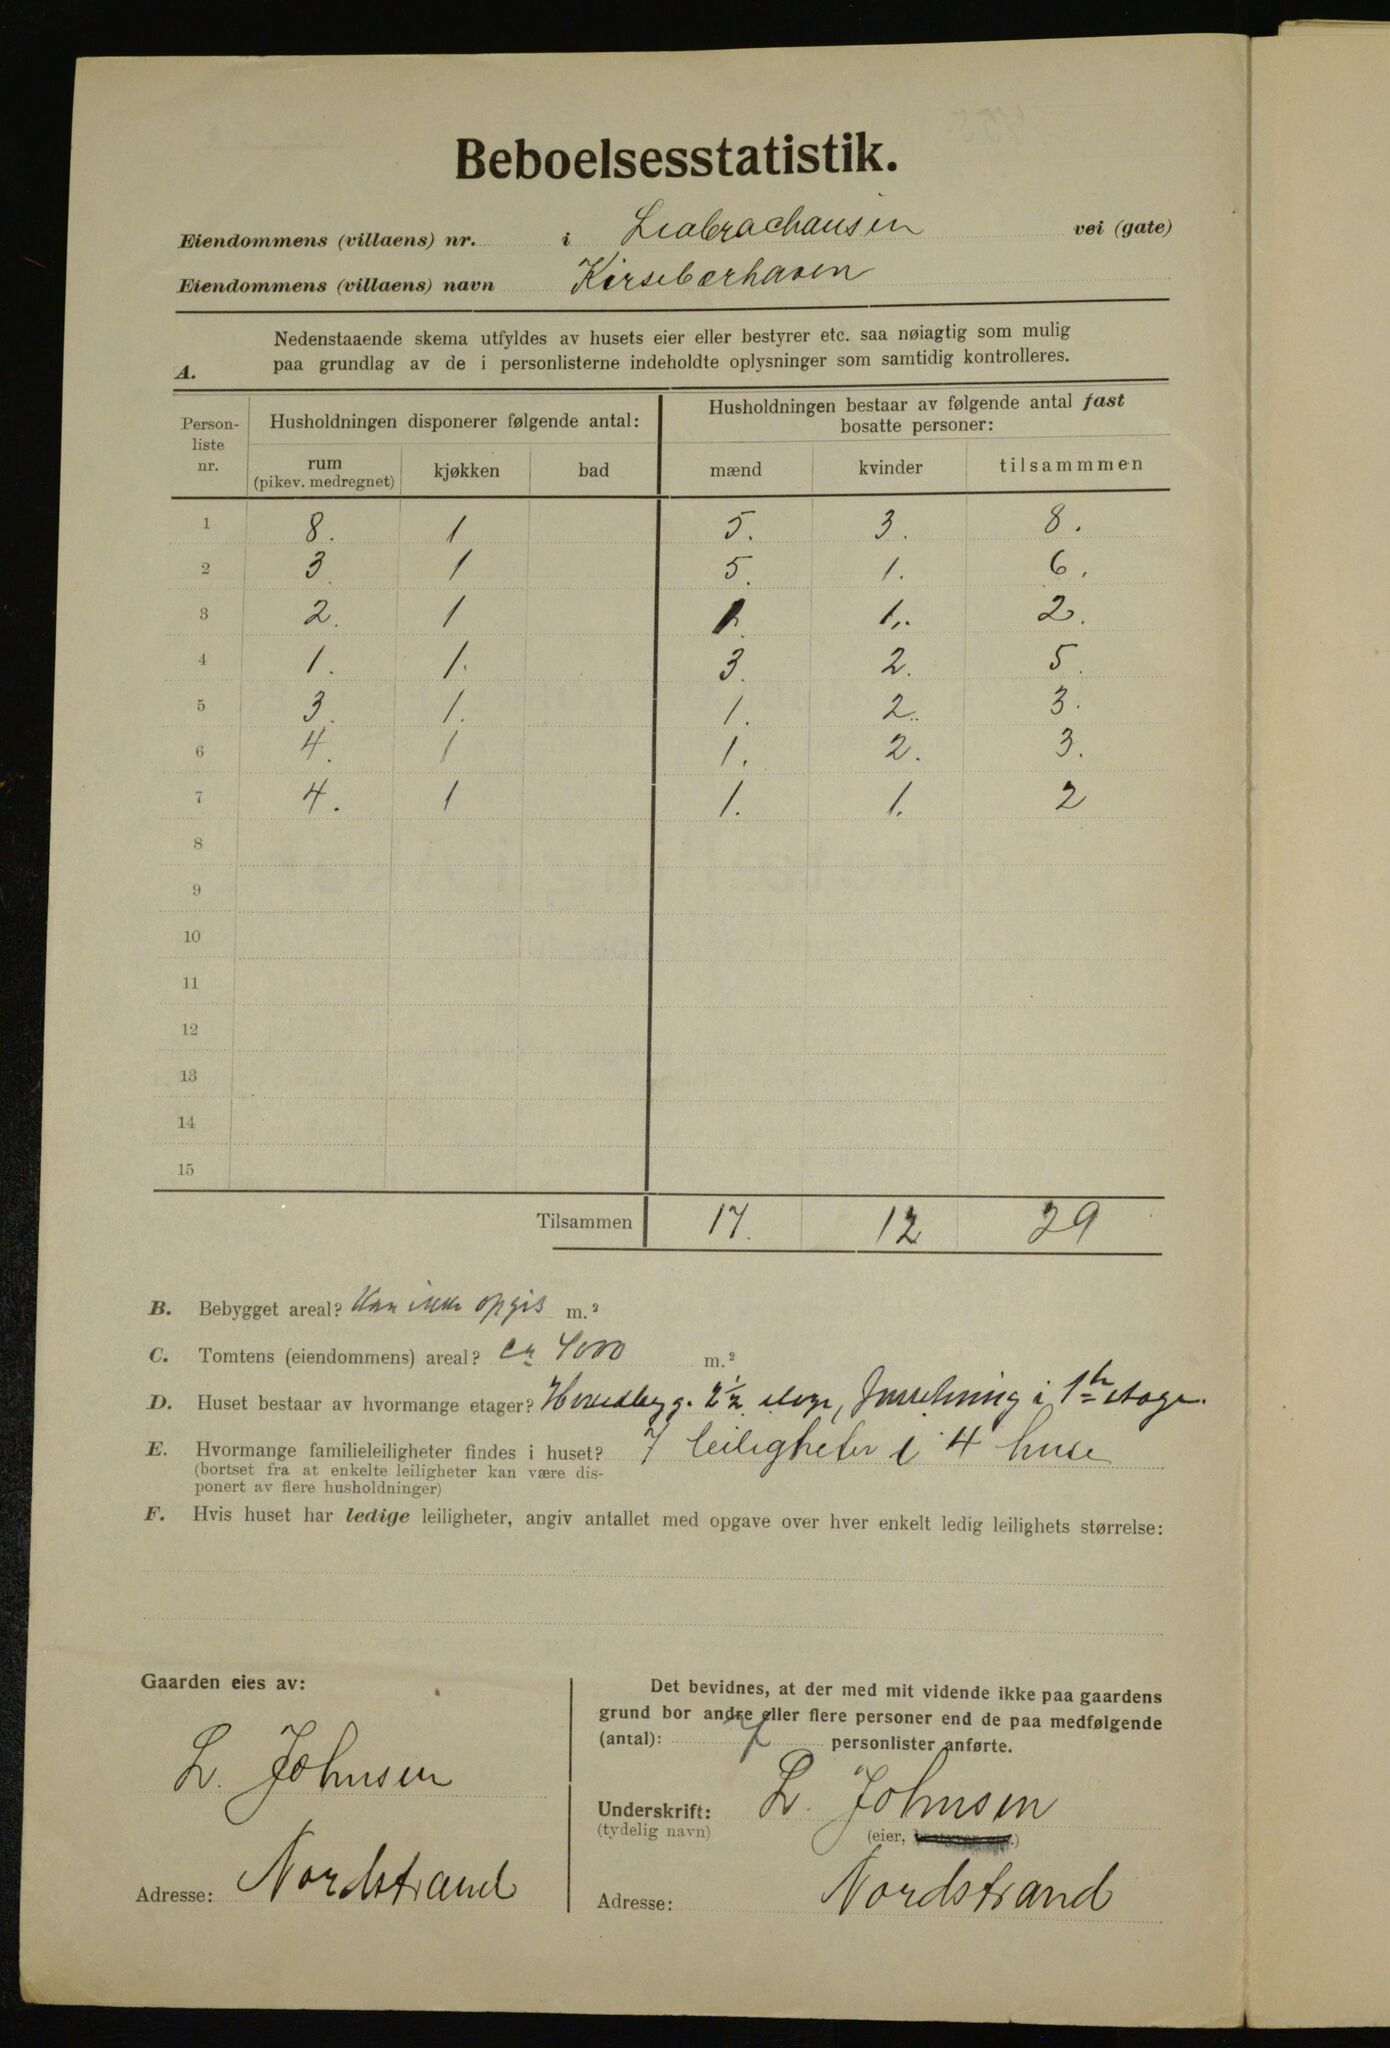 Beboelsesstatistik.
Eiendommens (villaens) nr. i Liabrochausen vei (gate)
Eiendommens (villaens) navn Kirsebærhaven
A. Nedenstaaende skema utfyldes av husets eier eller bestyrer etc. saa nøiagtig som mulig
paa grundlag av de i personlisterne indeholdte oplysninger som samtidig kontrolleres.
Person-liste nr. Husholdningen disponerer følgende antal: Husholdningen bestaar av følgende antal fast bosatte personer:
rum (pikev. medregnet) kjøkken bad mænd kvinder tilsammmen
1 8. 1 5. 3. 8.
2 3. 1 5. 1. 6.
3 2. 1 1. 1. 2.
4 1. 1. 3. 2. 5.
5 3. 1. 1. 2. 3.
6 4. 1 1. 2. 3.
7 4. 1 1. 1. 2
8
9
10
11
12
13
14
15
Tilsammen 17. 12 29
B. Bebygget areal? Kan ikke opgis m.²
C. Tomtens (eiendommens) areal? ca 4000 m.²
D. Huset bestaar av hvormange etager? Hovedbyg. 2 1/2 etage, i 1ste etage.
E. Hvormange familieleiligheter findes i huset? 7 leiligheter i 4 huse
(bortset fra at enkelte leiligheter kan være dis-
ponert av flere husholdninger)
F. Hvis huset har ledige leiligheter, angiv antallet med opgave over hver enkelt ledig leilighets størrelse:
Gaarden eies av:
L. Johnsen
Adresse: Nordstrand
Det bevidnes, at der med mit vidende ikke paa gaardens
grund bor andre eller flere personer end de paa medfølgende
(antal): 7 personlister anførte.
Underskrift: L. Johnsen
(tydelig navn) (eier, bestyrer etc.)
Adresse: Nordstrand